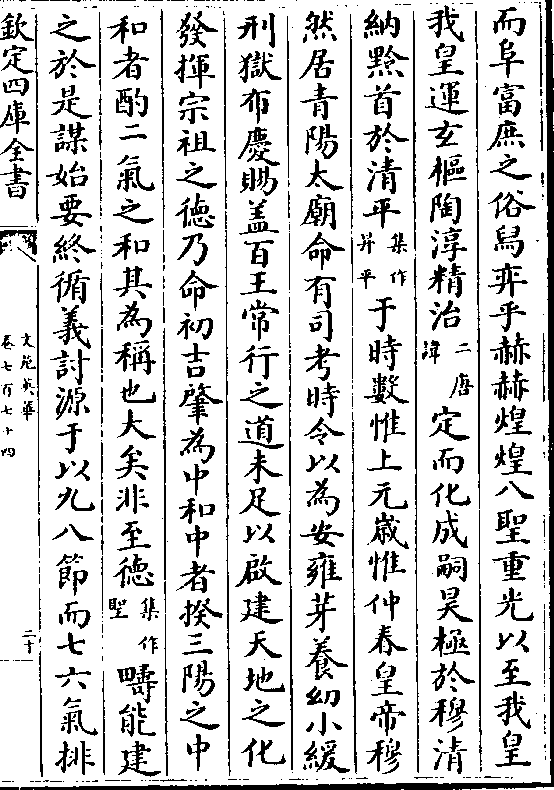 而阜富庶之俗舄弈乎赫赫煌煌八聖重光以至我皇
我皇運玄樞陶淳精治二唐諱定而化成嗣昊極於穆清
納黔首於清平集作昇平于時數惟上元歲惟仲春皇帝穆
然居青陽太廟命有司考時令以為安雍芽養幼小緩
刑獄布慶賜盖百王常行之道未足以啟建天地之化
發揮宗祖之德乃命初吉肇為中和中者揆三陽之中
和者酌二氣之和其為稱也大矣非至德集作聖疇能建
之於是謀始要終循義討源于以九八節而七六氣排
欽定四庫全書
文苑英華
卷七百七十四
二十